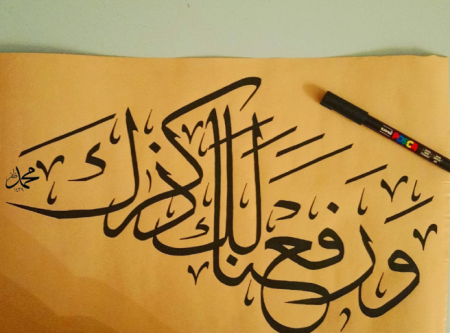 ورفعنا لك ذكرك
محمد
POSCA